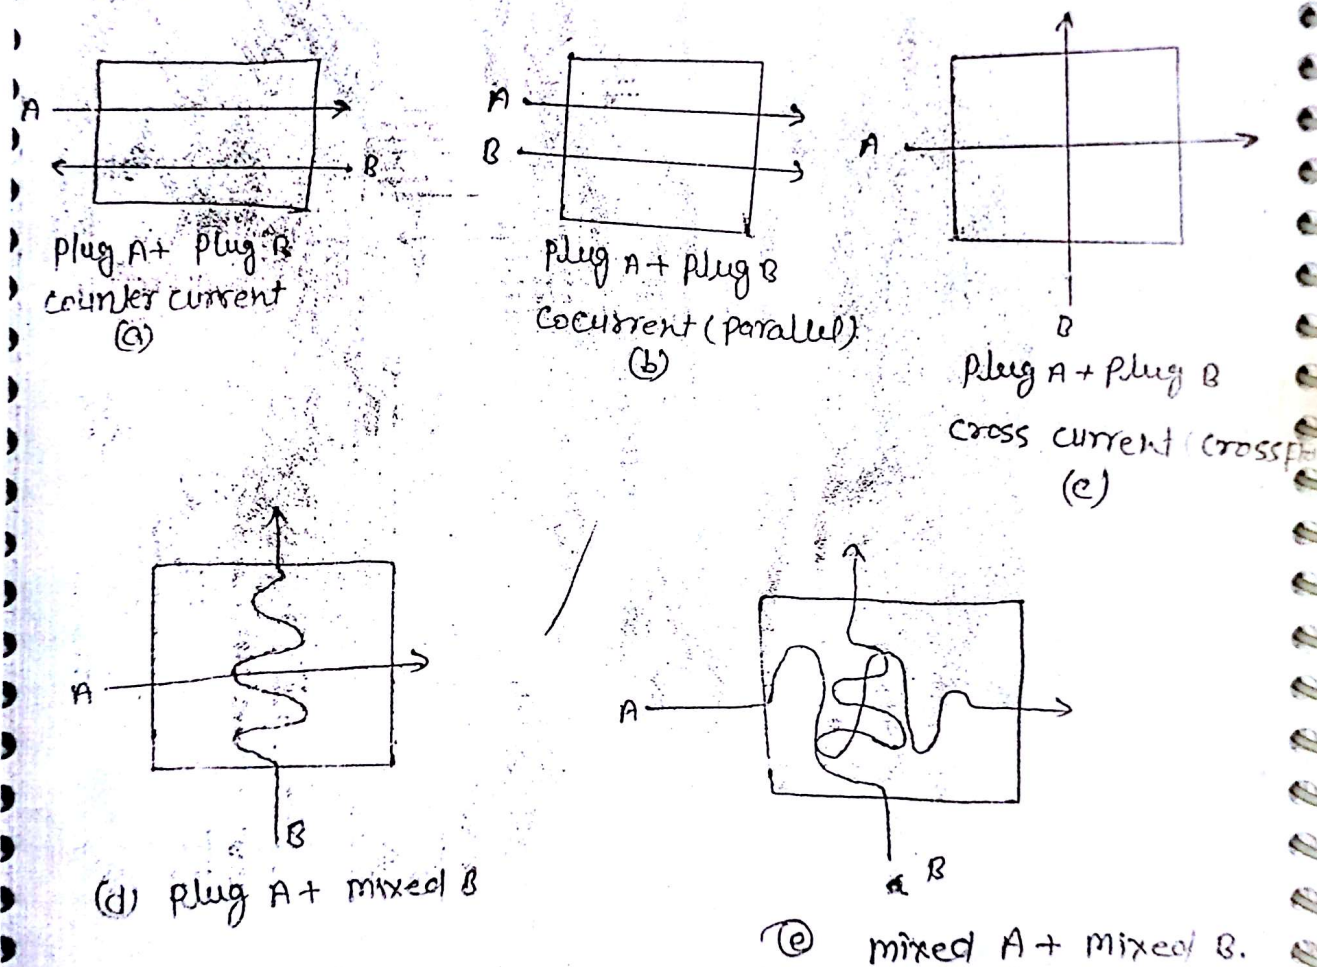 A
B
Plug A + Plug B
counter current
(a)
A
B
Plug A + Plug B
cocurrent (parallel)
(b)
A
B
Plug A + Plug B
cross current (
(c)
A
B
(d) Plug A + mixed B
A
B
(e) mixed A + mixed B.